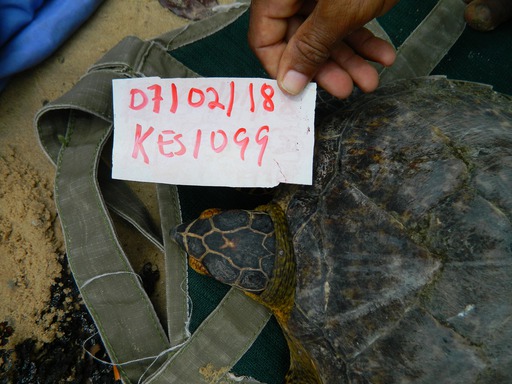 07/02/18
KES1099